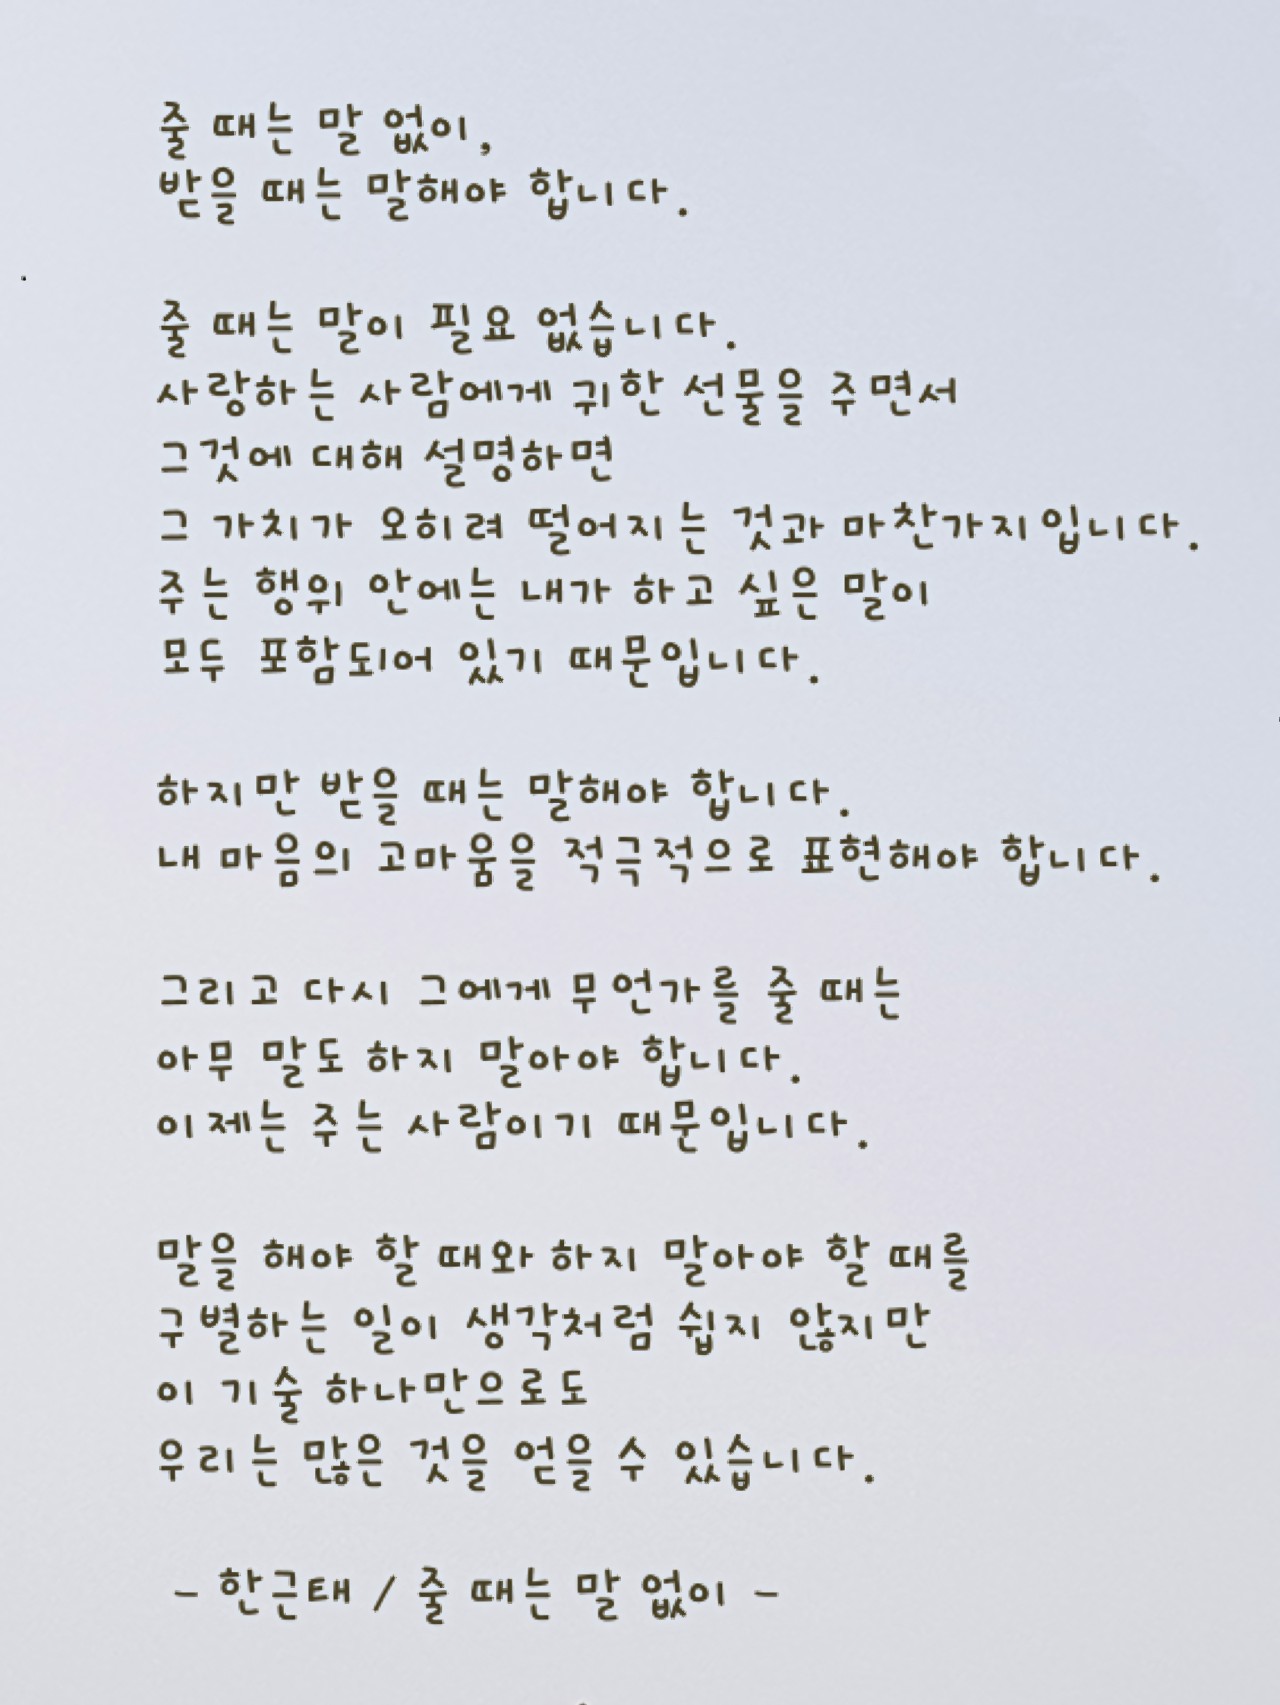 줄 때는 말 없이,
받을 때는 말해야 합니다.
줄 때는 말이 필요 없습니다.
사랑하는 사람에게 귀한 선물을 주면서
그것에 대해 설명하면
그 가치가 오히려 떨어지는 것과 마찬가지입니다.
주는 행위 안에는 내가 하고 싶은 말이
모두 포함되어 있기 때문입니다.
하지만 받을 때는 말해야 합니다.
내 마음의 고마움을 적극적으로 표현해야 합니다.
그리고 다시 그에게 무언가를 줄 때는
아무 말도 하지 말아야 합니다.
이제는 주는 사람이기 때문입니다.
말을 해야 할 때와 하지 말아야 할 때를
구별하는 일이 생각처럼 쉽지 않지만
이 기술 하나만으로도
우리는 많은 것을 얻을 수 있습니다.
- 한근태 / 줄 때는 말 없이 -